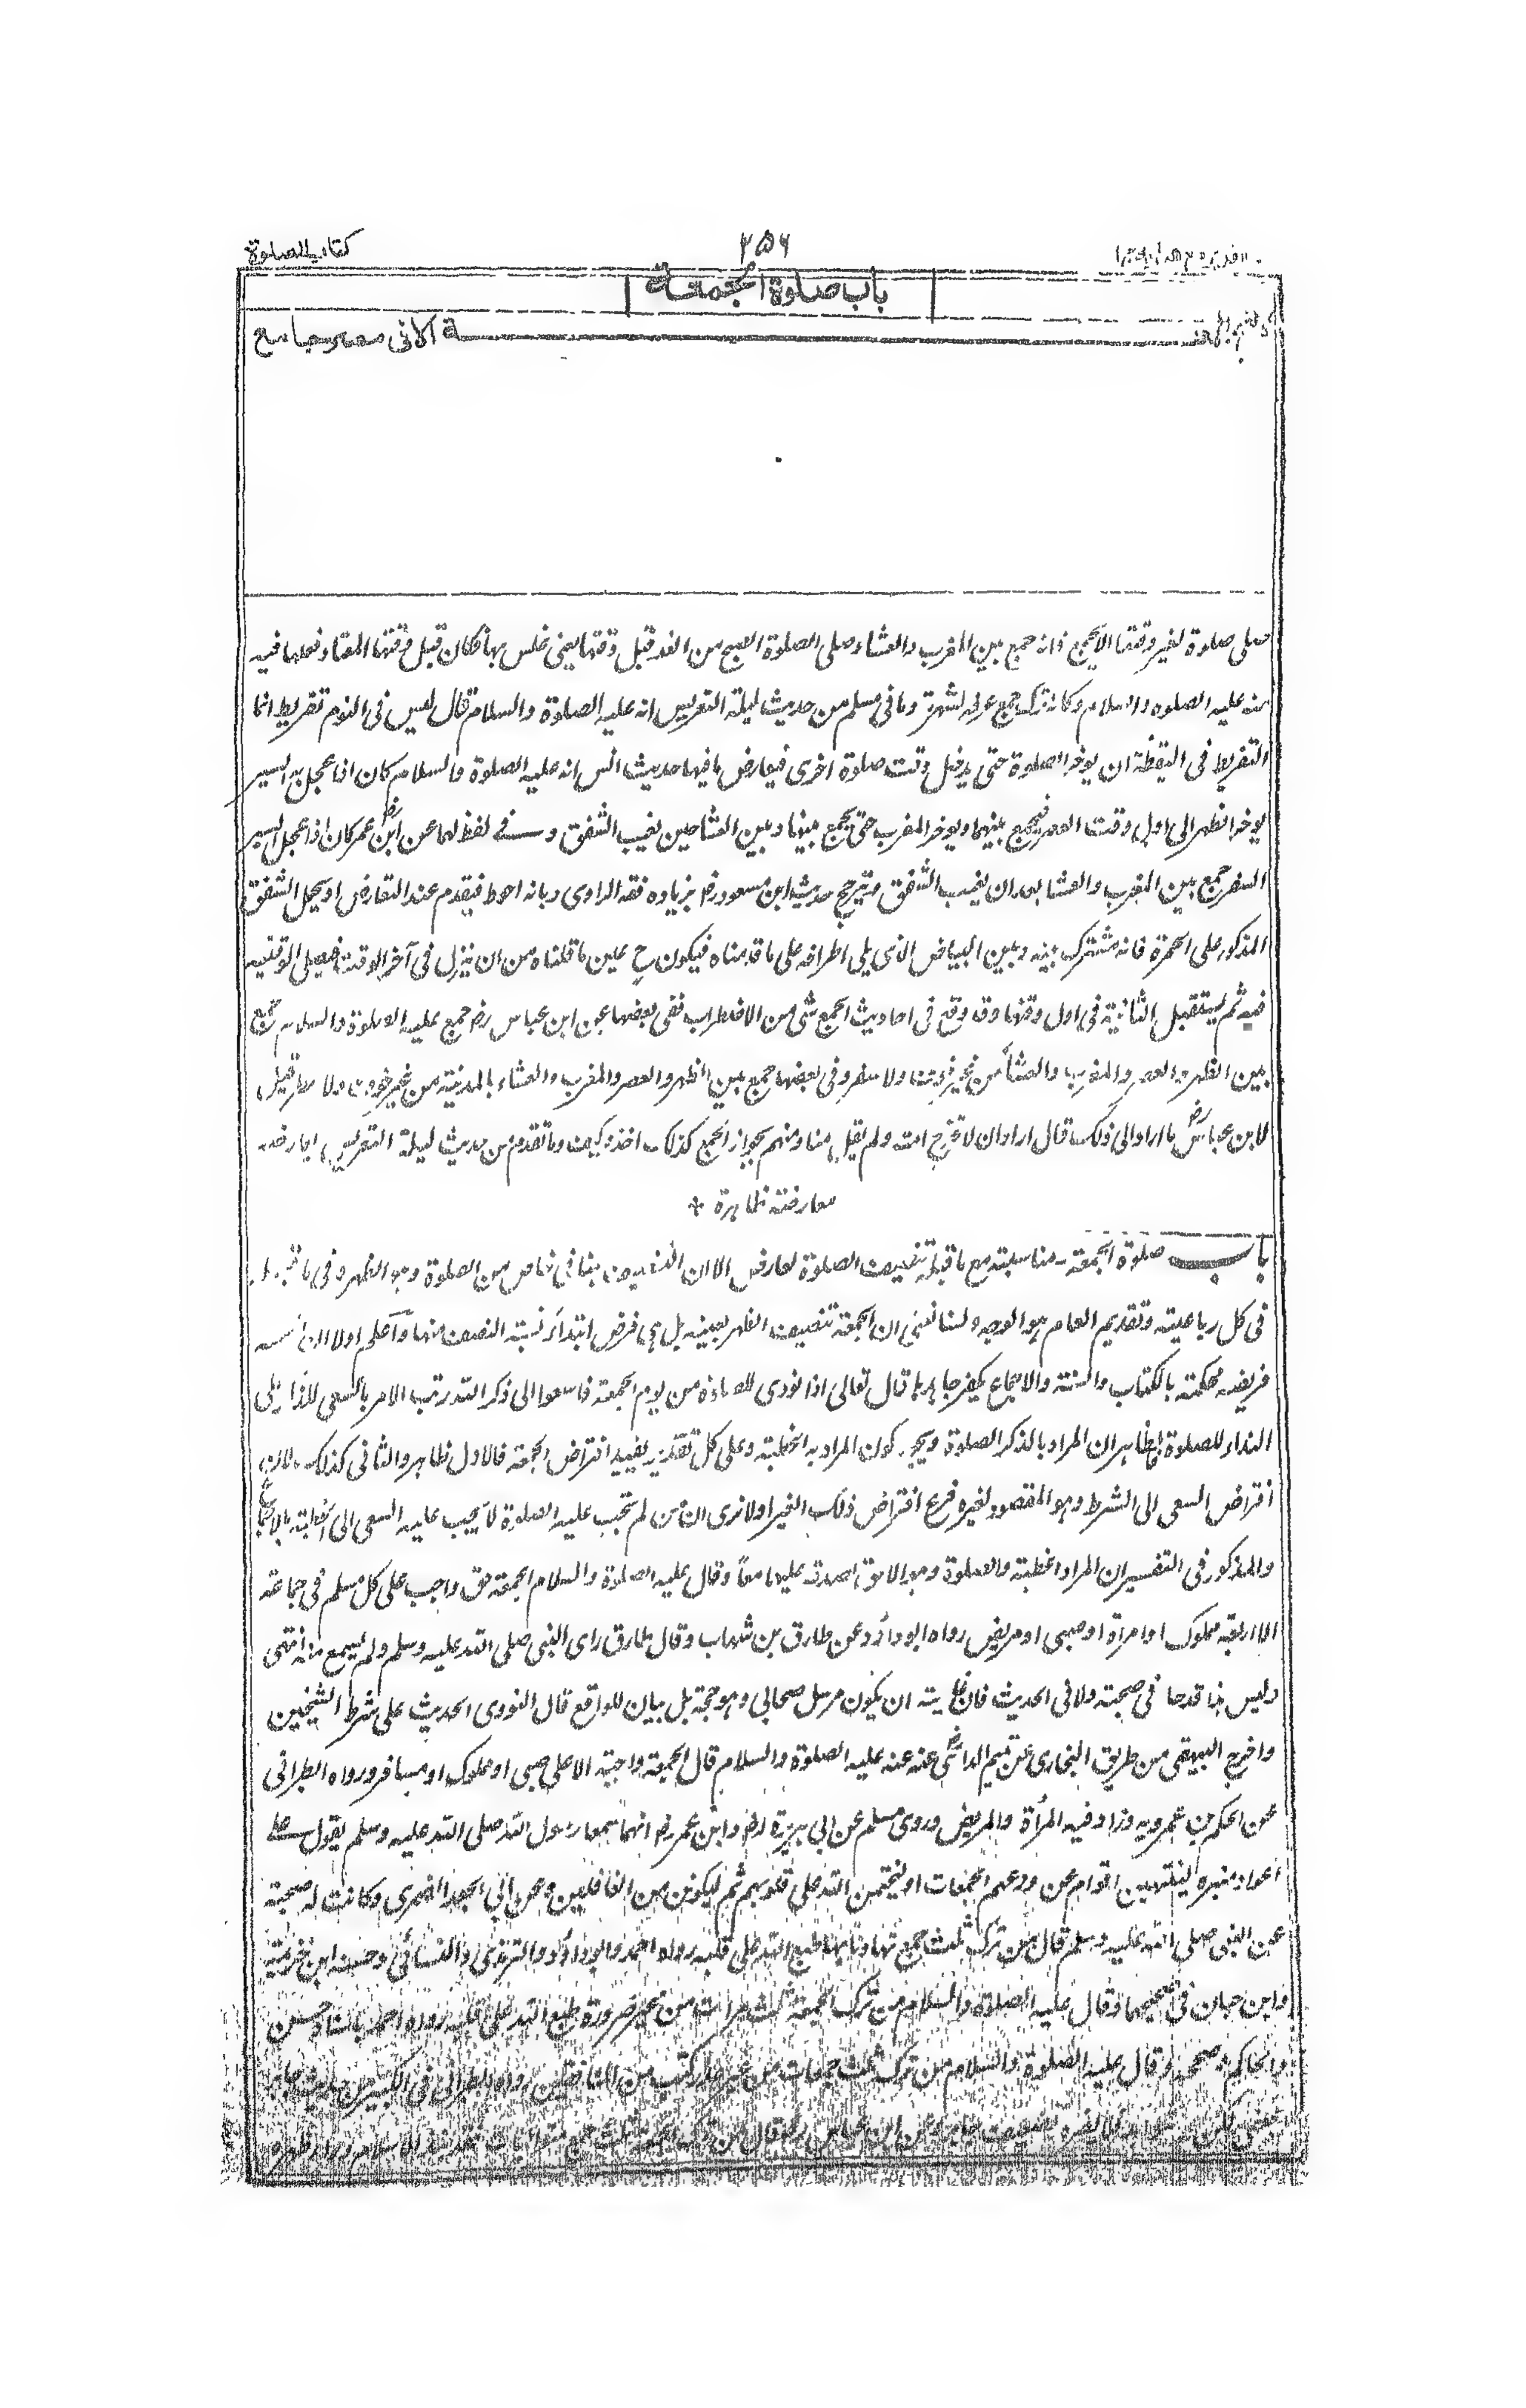 كتاب الصلوة
۲۵۶
باب صلوة الجمعة
لا تصح الجمعة الا فى مصر جامع
صلى صلوة لغير وقتها الا بجمع فانه جمع بين المغرب والعشاء وصلى الصلوة الصبح من الغد قبل وقتها يعنى غلس بها فكان قبل وقتها المعتاد فعلها فيه
منه عليه الصلوة والسلام وكانه ترك جمع عرفة لشهرته وما فى مسلم من حديث ليلة التعريس انه عليه الصلوة والسلام قال ليس فى النوم تفريط انما
التفريط فى اليقظة ان يوخر الصلوة حتى يدخل وقت صلوة اخرى فيعارض ما فيها حديث انس انه عليه الصلوة والسلام كان اذا عجل به السير
يوخر الظهر الى اول وقت العصر فيجمع بينهما ويوخر المغرب حتى يجمع بينها وبين العشا حين يغيب الشفق وفى لفظ لهما عن ابن عمر رض كان اذا عجل السير
السفر جمع بين المغرب والعشا بعد ان يغيب الشفق وترجح حديث ابن مسعود رض بزياده فقه الراوى وبانه احوط فيقدم عند التعارض او يحمل الشفق
المذكور على الحمرة فانه مشترك بينه وبين البياض الذى يلى اطرافه على ما قدمناه فيكون ح عين ما قلناه من ان ينزل فى آخر الوقت فيصلى الوقتية
فيه ثم يستقبل الثانية فى اول وقتها وقد وقع فى احاديث الجمع شى من الاضطراب ففى بعضها عن ابن عباس رض جمع عليه الصلوة والسلام جمع
بين الظهر والعصر والمغرب والعشا من غير خوف ولا سفر وفى بعضها جمع بين الظهر والعصر والمغرب والعشاء بالمدينة من غير خوف ولا مطر قيل
لابن عباس رض ما اراد الى ذلك قال اراد ان لا تحرج امته ولم يقل منا ومنهم بجواز الجمع كذلك احد وكيف وما تقدم من حديث ليلة التعريس يعارضه
معارضة ظاهرة *
باب صلوة الجمعة مناسبته مع ما قبله تنصيف الصلوة لعارض الا ان التنصيف هنا فى خاص من الصلوة وهو الظهر وفى ما قبله
فى كل رباعية وتقديم العام هو الوجه ولسنا نعنى ان الجمعة تنصيف الظهر بعينه بل هى فرض ابتداء نسبته النصف منها واعلم اولا ان الجمعة
فريضة محكمة بالكتاب والسنة والاجماع يكفر جاحدها قال تعالى اذا نودى للصلوة من يوم الجمعة فاسعوا الى ذكر الله رتب الامر بالسعى للذكر على
النداء للصلوة فالظاهر ان المراد بالذكر الصلوة ويجوز كون المراد به الخطبة وعلى كل تقدير يفيد افتراض الجمعة فالاول ظاهر والثانى كذلك لان
افتراض السعى الى الشرط وهو المقصود لغيره فرع افتراض ذلك الغير اولا ترى ان من لم تجب عليه الصلوة لا يجب عليه السعى الى الخطبة بالاجماع
والمذكور فى التفسير ان المراد الخطبة والصلوة وهو الاحق لصدقه عليهما معا وقال عليه الصلوة والسلام الجمعة حق واجب على كل مسلم فى جماعة
الا اربعة مملوك او امرأة او صبى او مريض رواه ابو داؤد عن طارق بن شهاب وقال طارق راى النبى صلى الله عليه وسلم ولم يسمع منه انتهى
وليس هذا قدحا فى صحبته ولا فى الحديث فان غايته ان يكون مرسل صحابى وهو حجة بل بيان للواقع قال النووى الحديث على شرط الشيخين
واخرج البيهقى من طريق البخارى عن تميم الدارى رض عنه عليه الصلوة والسلام قال الجمعة واجبة الا على صبى او مملوك او مسافر ورواه الطبرانى
عن الحكم بن عمرو به وزاد فيه المرأة والمريض وروى مسلم عن ابى هريرة رض وابن عمر رض انهما سمعا رسول الله صلى الله عليه وسلم يقول على
اعواد منبره لينتهين اقوام عن ودعهم الجمعات او ليختمن الله على قلوبهم ثم ليكونن من الغافلين وعن ابى الجعد الضمرى وكانت له صحبة
عن النبى صلى الله عليه وسلم قال من ترك ثلث جمع تهاونا بها طبع الله على قلبه رواه احمد وابو داؤد والترمذى والنسائى وحسنه ابن خزيمة
وابن حبان فى صحيحيهما وقال عليه الصلوة والسلام من ترك الجمعة ثلث مرات من غير ضرورة طبع الله على قلبه رواه احمد باسناد حسن
والحاكم وصححه وقال عليه الصلوة والسلام من ترك ثلث جمعات من غير عذر كتب من المنافقين رواه الطبرانى فى الكبير من حديث جابر
وعن ابن عباس رض قال من ترك الجمعة ثلث جمع متواليات فقد نبذ الاسلام وراء ظهره